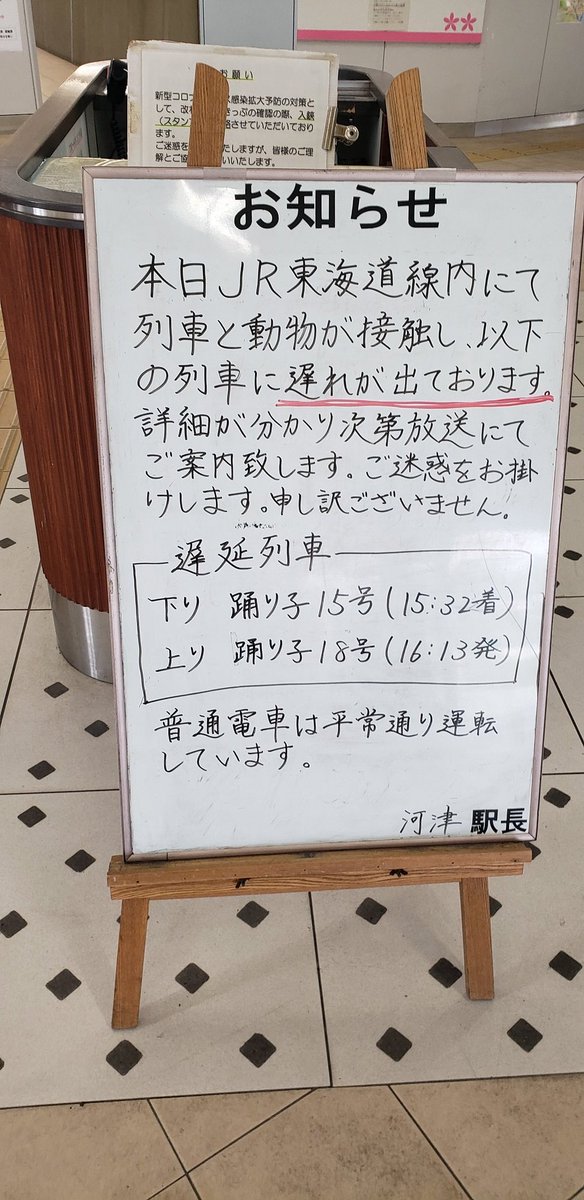 お願い
新型コロ
感染拡大予防の対策と
して、改
きっぷの確認の際、入鋏
（スタン
略させていただいており
ます。
ご迷惑を
たしますが、皆様のご理
解とご協
いいたします。
お知らせ
本日JR東海道線内にて
列車と動物が接触し、以下
の列車に遅れが出ております。
詳細が分かり次第放送にて
ご案内致します。ご迷惑をお掛
けします。申し訳ございません。
遅延列車
下り 踊り子15号(15:32着)
上り 踊り子18号(16:13発)
普通電車は平常通り運転
しています。
河津 駅長